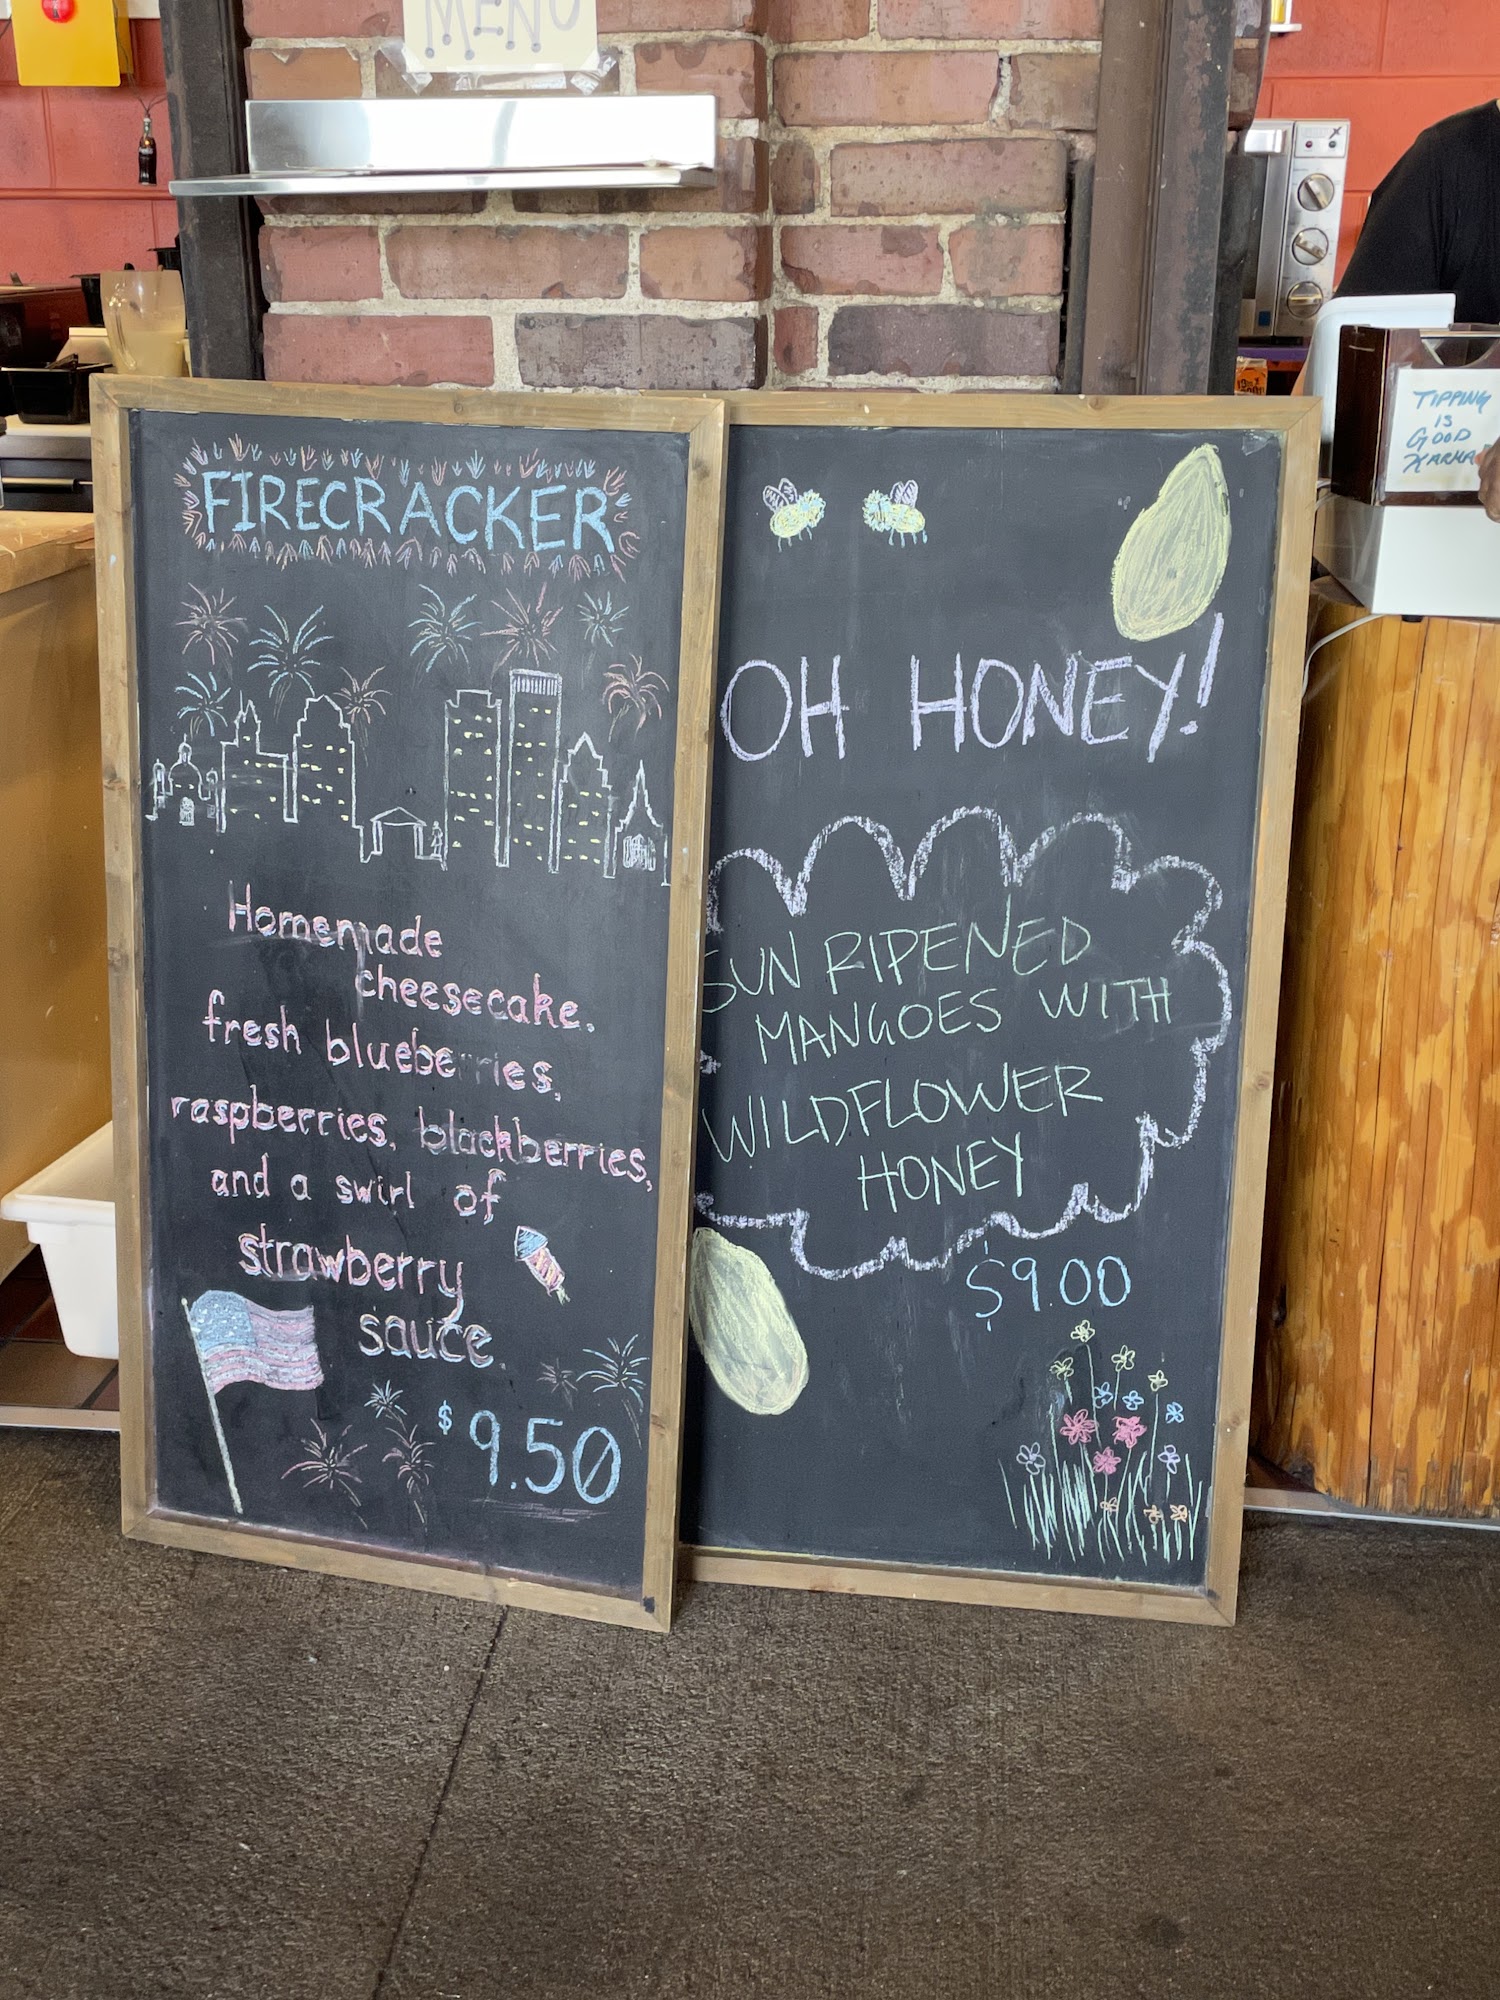 MENU
FIRECRACKER
Homemade
cheesecake.
fresh blueberries,
raspberries, blackberries,
and a swirl of
strawberry
sauce.
$9.50
OH HONEY!
SUN RIPENED
MANGOES WITH
WILDFLOWER
HONEY
$9.00
TIPPING
IS
GOOD
KARMA